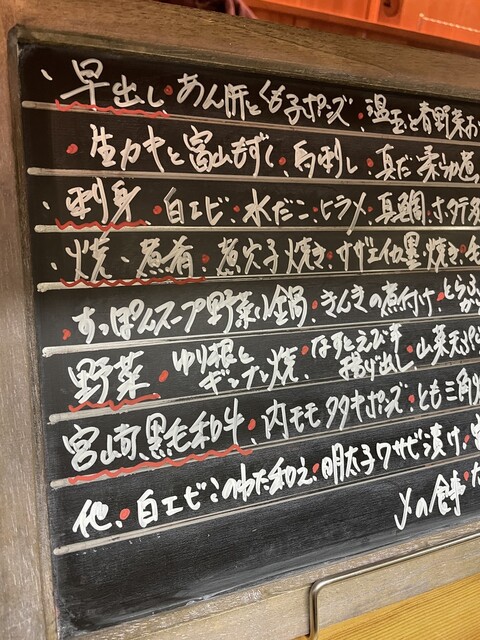 早出し・あん肝とくも子ポンズ・温玉と春野菜お
・生カキと富山もずく・馬刺し・真だこ柔らか煮
・刺身・白エビ・水だこ・ヒラメ・真鯛・ホタテ
・焼・煮肴・煮穴子焼き・サザエイカ墨焼き・
・すっぽんスープ野菜小鍋・きんきの煮付け・とらふ
野菜・ゆり根とギンナン焼・なすとえび芋揚げ出し・山菜天ぷら
宮崎黒毛和牛・内モモタタキポンズ・とも三角
他・白エビこのわた和え・明太子ワサビ漬け・
〆の食事・